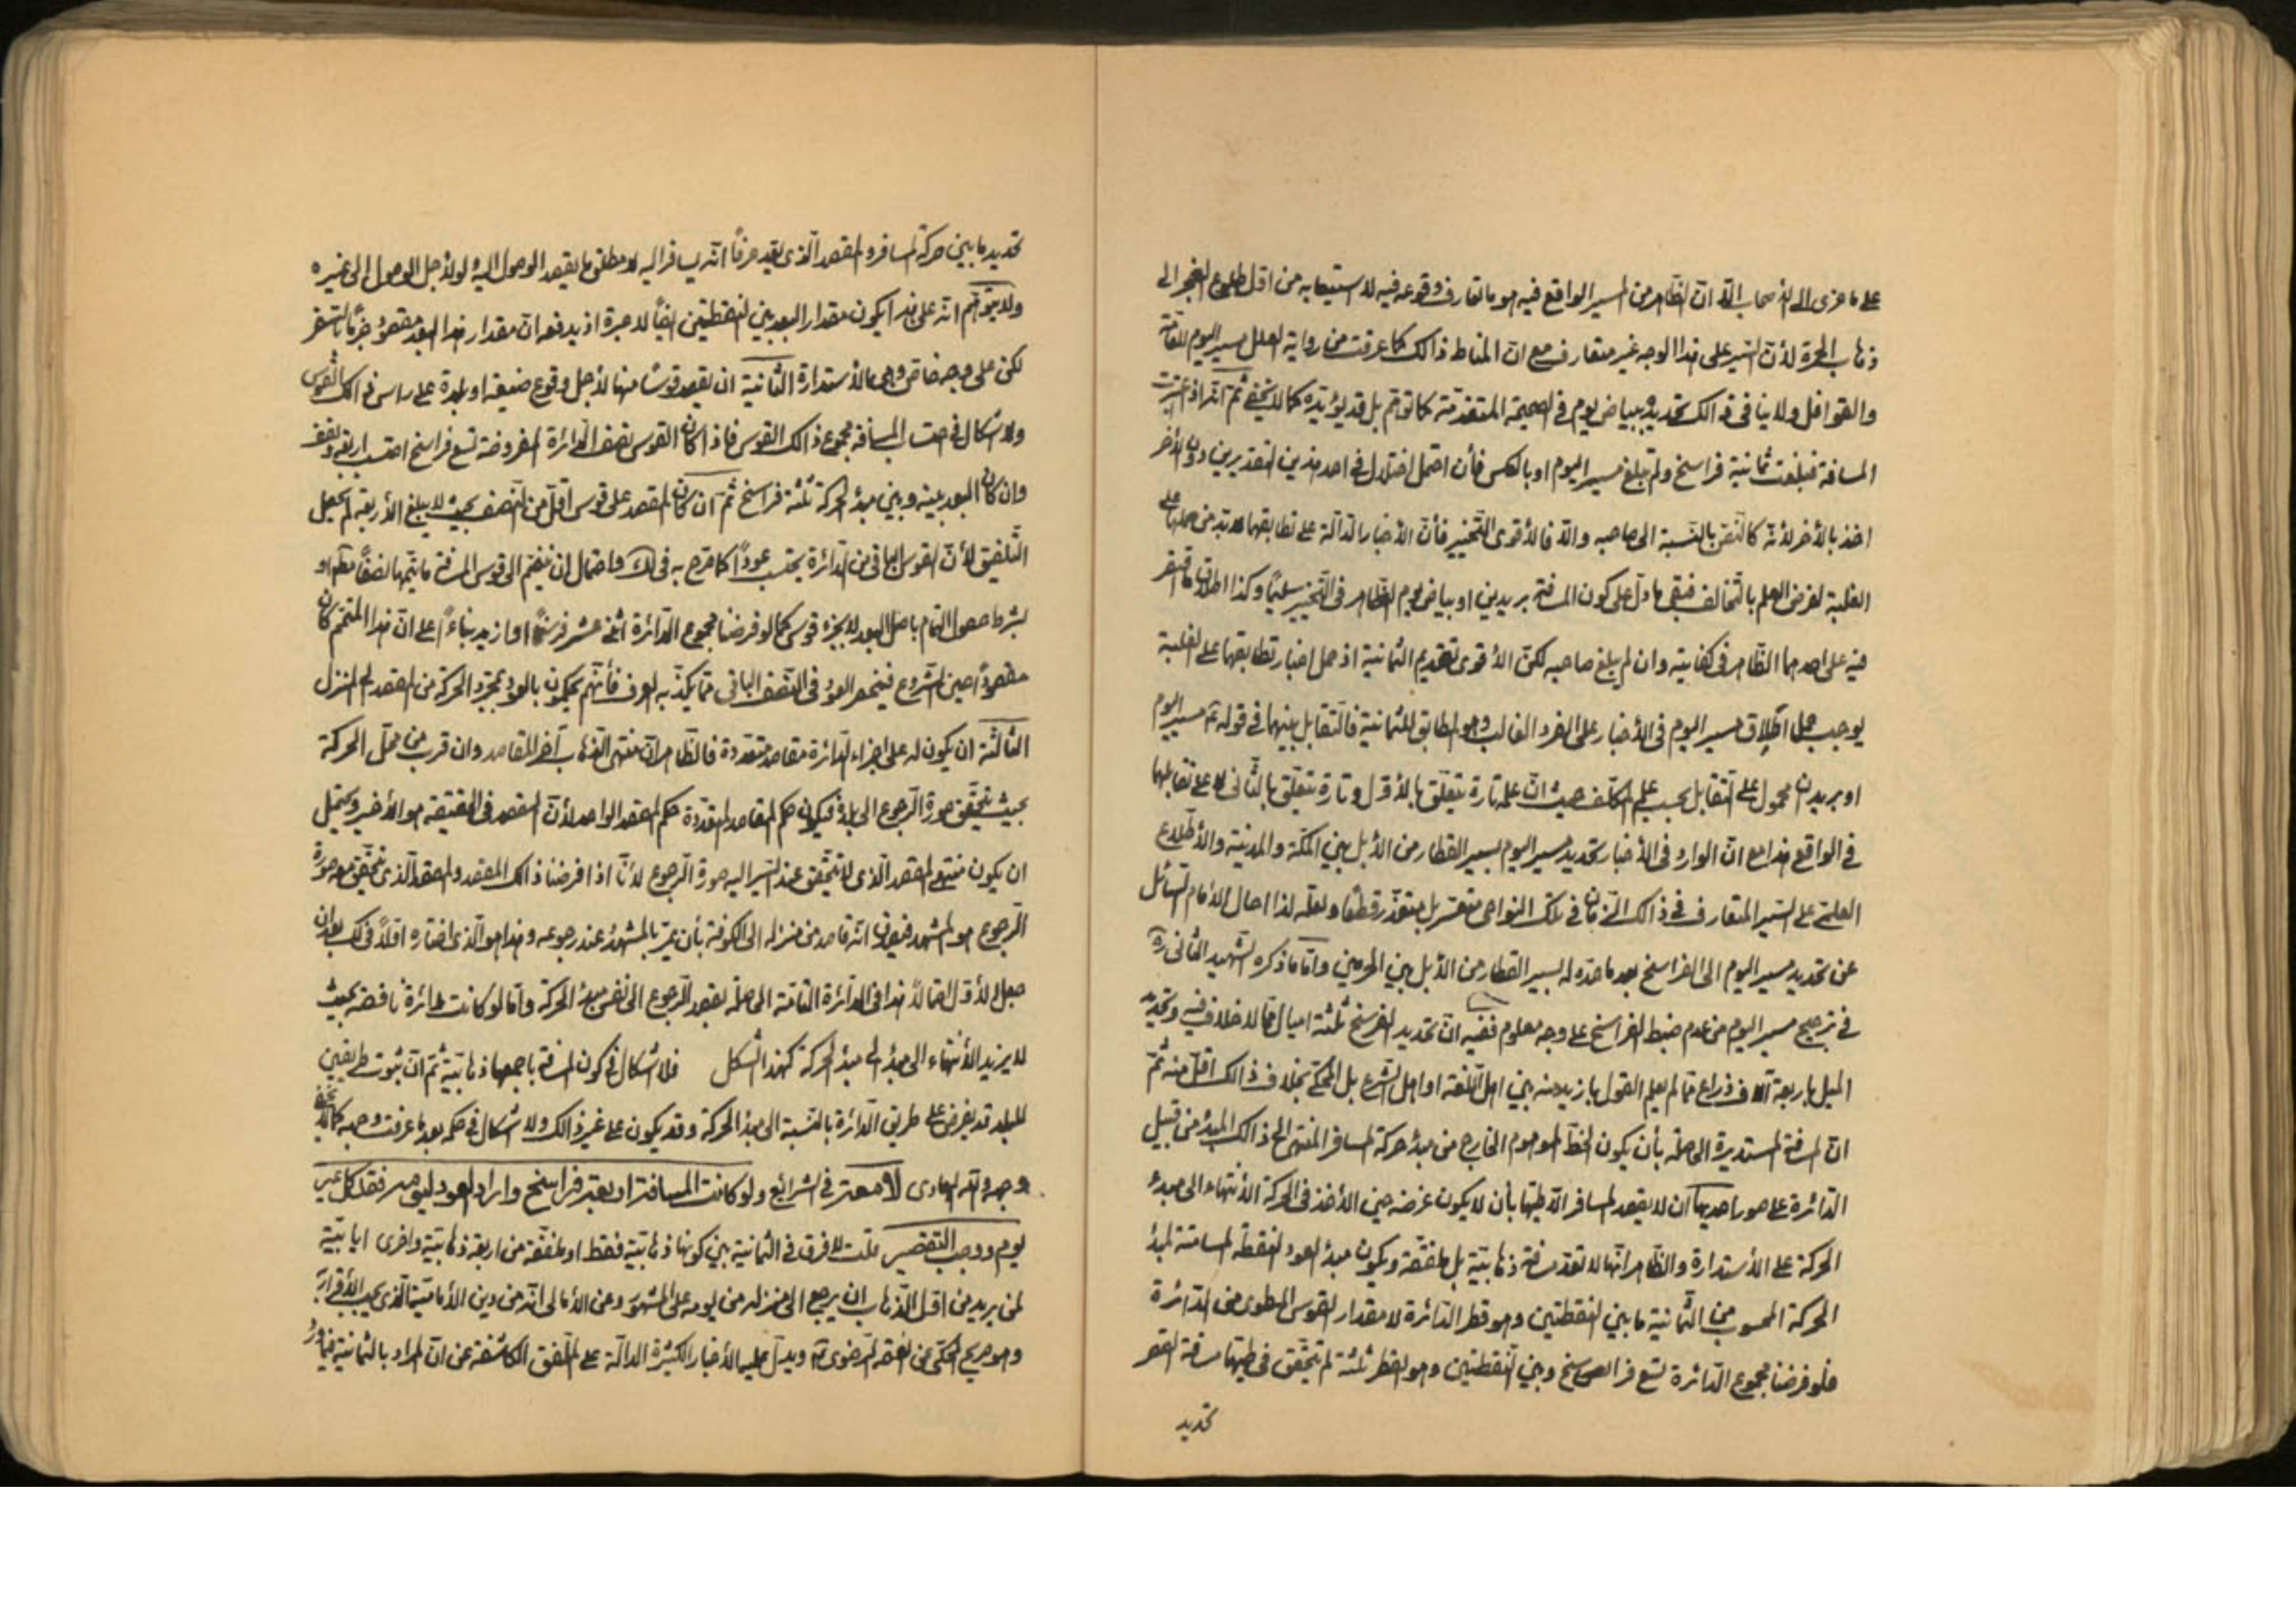 على ما عزى الى الأصحاب الا ان الظاهر من المسير الواقع فيه هو ما تعارف وقوعه فيه لا استيعابه من اول طلوع الفجر الى
ذهاب الحمرة لأن السير على هذا الوجه غير متعارف مع ان المناط ذالك كما عرفت من رواية العلل مسير اليوم للعامة
والقوافل ولا ينافى ذالك تحديده ببياض يوم فى الصحيحة المتقدمة كما توهم بل قد يؤيده كما لا يخفى ثم انه اذ اعتبرت
المسافة فبلغت ثمانية فراسخ ولم تبلغ مسير اليوم او بالعكس فأن احتمل اختلال فى احد هذين التقديرين دون الأخر
اخذ بالأخر لأنه كالنص بالنسبة الى صاحبه والا فالأقوى التخيير فأن الأخبار الدالة على تطابقهما لا بد من حملها على
الغلبة لفرض العلم بالتخالف فيبقى ما دل على كون المسافة بريدين او بياض يوم الظاهر فى التخيير سليما وكذا اطلاق ما اقتصر
فيه على احدهما الظاهر فى كفايته وان لم يبلغ صاحبه لكن الأقوى تقديم الثمانية اذ حمل اخبار تطابقهما على الغلبة
يوجب حمل اطلاق مسير اليوم فى الأخبار على الفرد الغالب وهو المطابق للثمانية فالتقابل بينهما فى قوله مسير اليوم
او بريدان محمول على التقابل بحسب علم المكلف حيث ان علمه تارة يتعلق بالأول وتارة يتعلق بالثانى لا على تقابلهما
فى الواقع هذا مع ان الوارد فى الأخبار تحديد مسير اليوم بسير القطار من الأبل بين المكة والمدينة والأطلاع
العلمى على السير المتعارف فى ذالك الزمان فى تلك النواحى متعسر بل متعذر قطعا ولعله لذا احال الأمام السائل
عن تحديد مسير اليوم الى الفراسخ بعد ما حده له بسير القطار من الأبل بين الحرمين واما ما ذكره الشهيد الثانى ره
فى ترجيح مسير اليوم من عدم ضبط الفراسخ على وجه معلوم ففيه ان تحديد الفرسخ بثلثة اميال مما لا خلاف فيه وتحديد
الميل باربعة آلاف ذراع مما لم يعلم القول بازيد منه بين اهل اللغة او اهل الشرع بل المحكى بخلاف ذالك اقل منه ثم
ان المسافة المستديرة الحاصلة بأن يكون الخط الموهوم الخارج من مبدء حركة المسافر المنتهى الى ذالك المبدء من قبيل
الدائرة على صور احديها ان لا يقصد المسافر الا طيها بأن لا يكون غرضه حين الأخذ فى الحركة الا نتهاء الى مبدء
الحركة على الأستدارة والظاهر انها لا تعد مسافة ذهابية بل ملفقة ويكون مبدء العود النقطة المسامتة لمبدء
الحركة المحسوب من الثمانية ما بين النقطتين وهو قطر الدائرة لا مقدار القوس المطوى من الدائرة
فلو فرضنا مجموع الدائرة تسع فراسخ وبين النقطتين وهو القطر ثلثة لم تتحقق فى طيها مسافة القصر
تحديد
تحديد ما بين حركة المسافر والمقصد الذى يقصد عرفا انه يسافر اليه لا مطلق ما يقصد الوصول اليه ولو لأجل الوصول الى غيره
ولا يتوهم انه على هذا يكون مقدار البعد بين النقطتين ايضا لا عبرة اذ يدفعه ان مقدار هذا البعد مقصود جزما بالسفر
لكن على وجه خاص وهى الأستدارة الثانية ان يقصد قوسا منها لأجل وقوع ضيعة او بلدة على راس ذالك القوس
ولا اشكال فى حساب المسافة مجموع ذالك القوس فاذا كان القوس نصف الدائرة المفروضة تسع فراسخ احتسب اربعة ونصف
وان كان البعد بينه وبين مبدء الحركة ثلثة فراسخ ثم ان كان المقصد على قوس اقل من النصف بحيث لا يبلغ الأربعة لم يحصل
التلفيق لأن القوس الباقى من الدائرة يحتسب عودا كما صرح به فى لك واحتمال ان ينضم الى قوس المسافة ما يتمها نصفا مطلقا او
بشرط حصول التمام باصل البعد لا بجزء قوس كما لو فرضنا مجموع الدائرة اثنى عشر فرسخا او ازيد بناءً على ان هذا المتمم كان
مقصودا حين الشروع فينحصر العود فى النصف الباقى مما يكذبه العرف فأنهم يحكمون بالعود بمجرد الحركة من المقصد الى المنزل
الثالثة ان يكون له على اجزاء الدائرة مقاصد متعددة فالظاهر ان منتهى الذهاب آخر المقاصد وان قرب من محل الحركة
بحيث يتحقق صورة الرجوع الى بلده فيكون حكم المقاصد المتعددة حكم المقصد الواحد لأن المقصد فى الحقيقة هو الأخير ويحتمل
ان يكون منتهى المقصد الذى لا يتحقق عند السير اليه صورة الرجوع لأنا اذا فرضنا ذالك المقصد والمقصد الذى يتحقق معه صورة
الرجوع هو المشهد فيقولون انه قاصد من منزله الى الكوفة بأن يمر بالمشهد عند رجوعه وهذا هو الذى اختاره اولا فى لك بعد ان
جعل الأول احتمالا هذا فى الدائرة التامة الحاصلة بقصد الرجوع الى نفس مبدء الحركة واما لو كانت الدائرة ناقصة بحيث
لا يريد الأنتهاء الى مبدء الى مبدء الحركة كهذا الشكل فلا اشكال فى كون المسافة باجمعها ذهابية ثم ان ثبوت طريقين
للبلد قد يفرض على طريق الدائرة بالنسبة الى مبدء الحركة وقد يكون على غير ذالك ولا اشكال فى حكمه بعد ما عرفت وجهه كما لا يخفى
وجهه والله الهادى لا معتبر فى الشرائع ولو كانت المسافة اربعة فراسخ واراد العود ليومه فقد كمل مسير
يوم ووجب التقصير قلت لا فرق فى الثمانية بين كونها ذهابية فقط او ملفقة من اربعة ذهابية واخرى ايابية
لمن يريد من اول الذهاب ان يرجع الى منزله من يومه على المشهور وعن الأمالى انه من دين الأمامية الذى يجب الأقرار به
وهو صريح المحكى عن الفقه الرضوى ويدل عليه الأخبار الكثيرة الدالة على التلفيق الكاشفة عن ان المراد بالثمانية فيما ورد